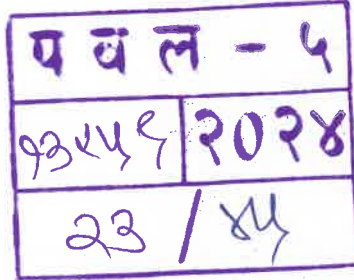 प व ल - ५
१३९५६ २०२४
२३ / ४५